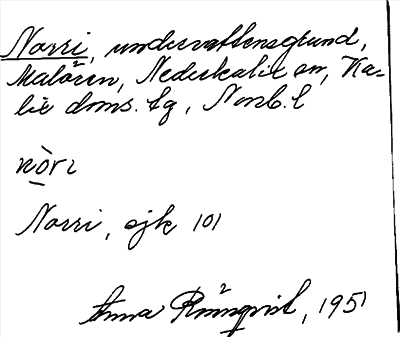 Norri, undervattensgrund,
Malören, Nederkalix sn, Ka-
lix doms. lg, Norrb. l
nòri
Norri, sjk 101
Anna Rönnqvist, 1951